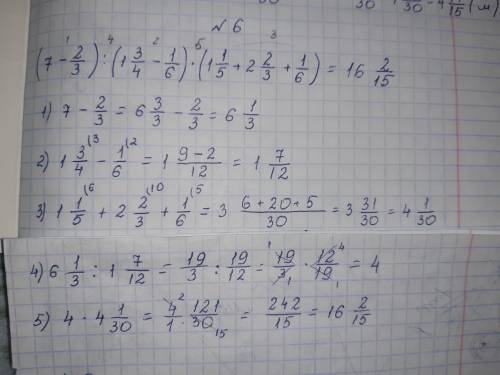 30   30 - 4 1/15 (м)
№ 6
(7 - 2/3) : (1 3/4 - 1/6) · (1 1/5 + 2 2/3 + 1/6) = 16 2/15
1) 7 - 2/3 = 6 3/3 - 2/3 = 6 1/3
2) 1 3/4 - 1/6 = 1 (9-2)/12 = 1 7/12
3) 1 1/5 + 2 2/3 + 1/6 = 3 (6+20+5)/30 = 3 31/30 = 4 1/30
4) 6 1/3 : 1 7/12 = 19/3 : 19/12 = 19/3 · 12/19 = 4
5) 4 · 4 1/30 = 4/1 · 121/30 = 242/15 = 16 2/15